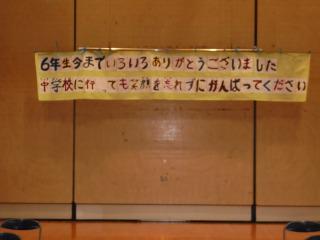 6年生今までいろいろありがとうございました
中学校に行っても笑顔を忘れずにがんばってください